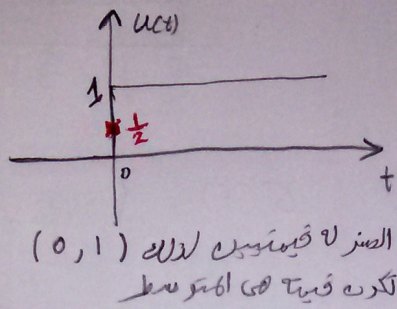 u(t)
1
1/2
0
t
الصفر له قيمتين لذلك (0,1)
تكون قيمته هي المتوسط